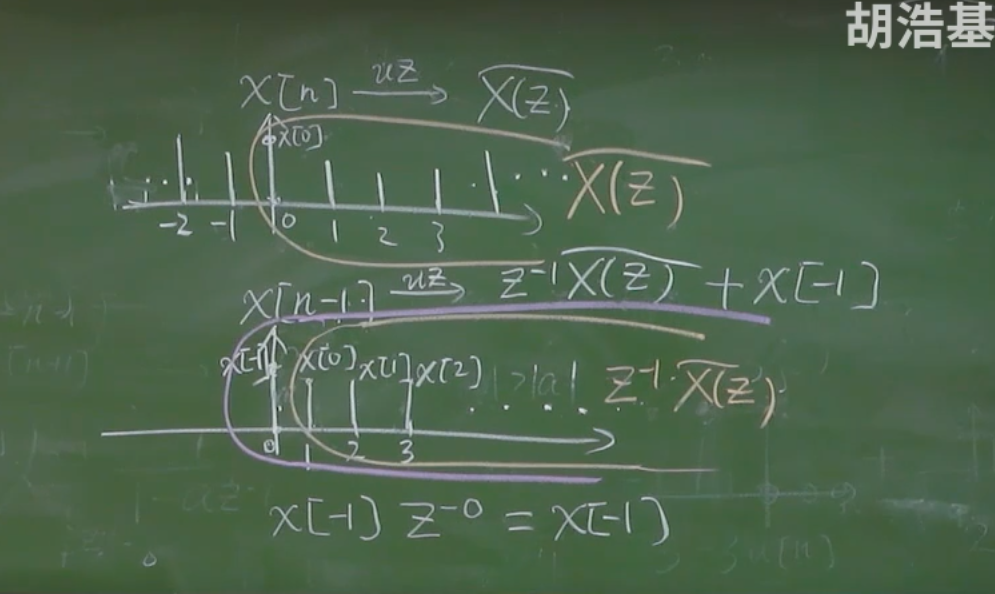 胡浩基
x[n] uz→ X̅(̅z̅)̅
x[0]
... X̅(̅z̅)̅
-2 -1 0 1 2 3
x[n-1] uz→ z⁻¹X̅(̅z̅)̅ + x[-1]
x[-1] x[0] x[1] x[2] z⁻¹·X̅(̅z̅)̅
0 1 2 3
x[-1] z⁻⁰ = x[-1]